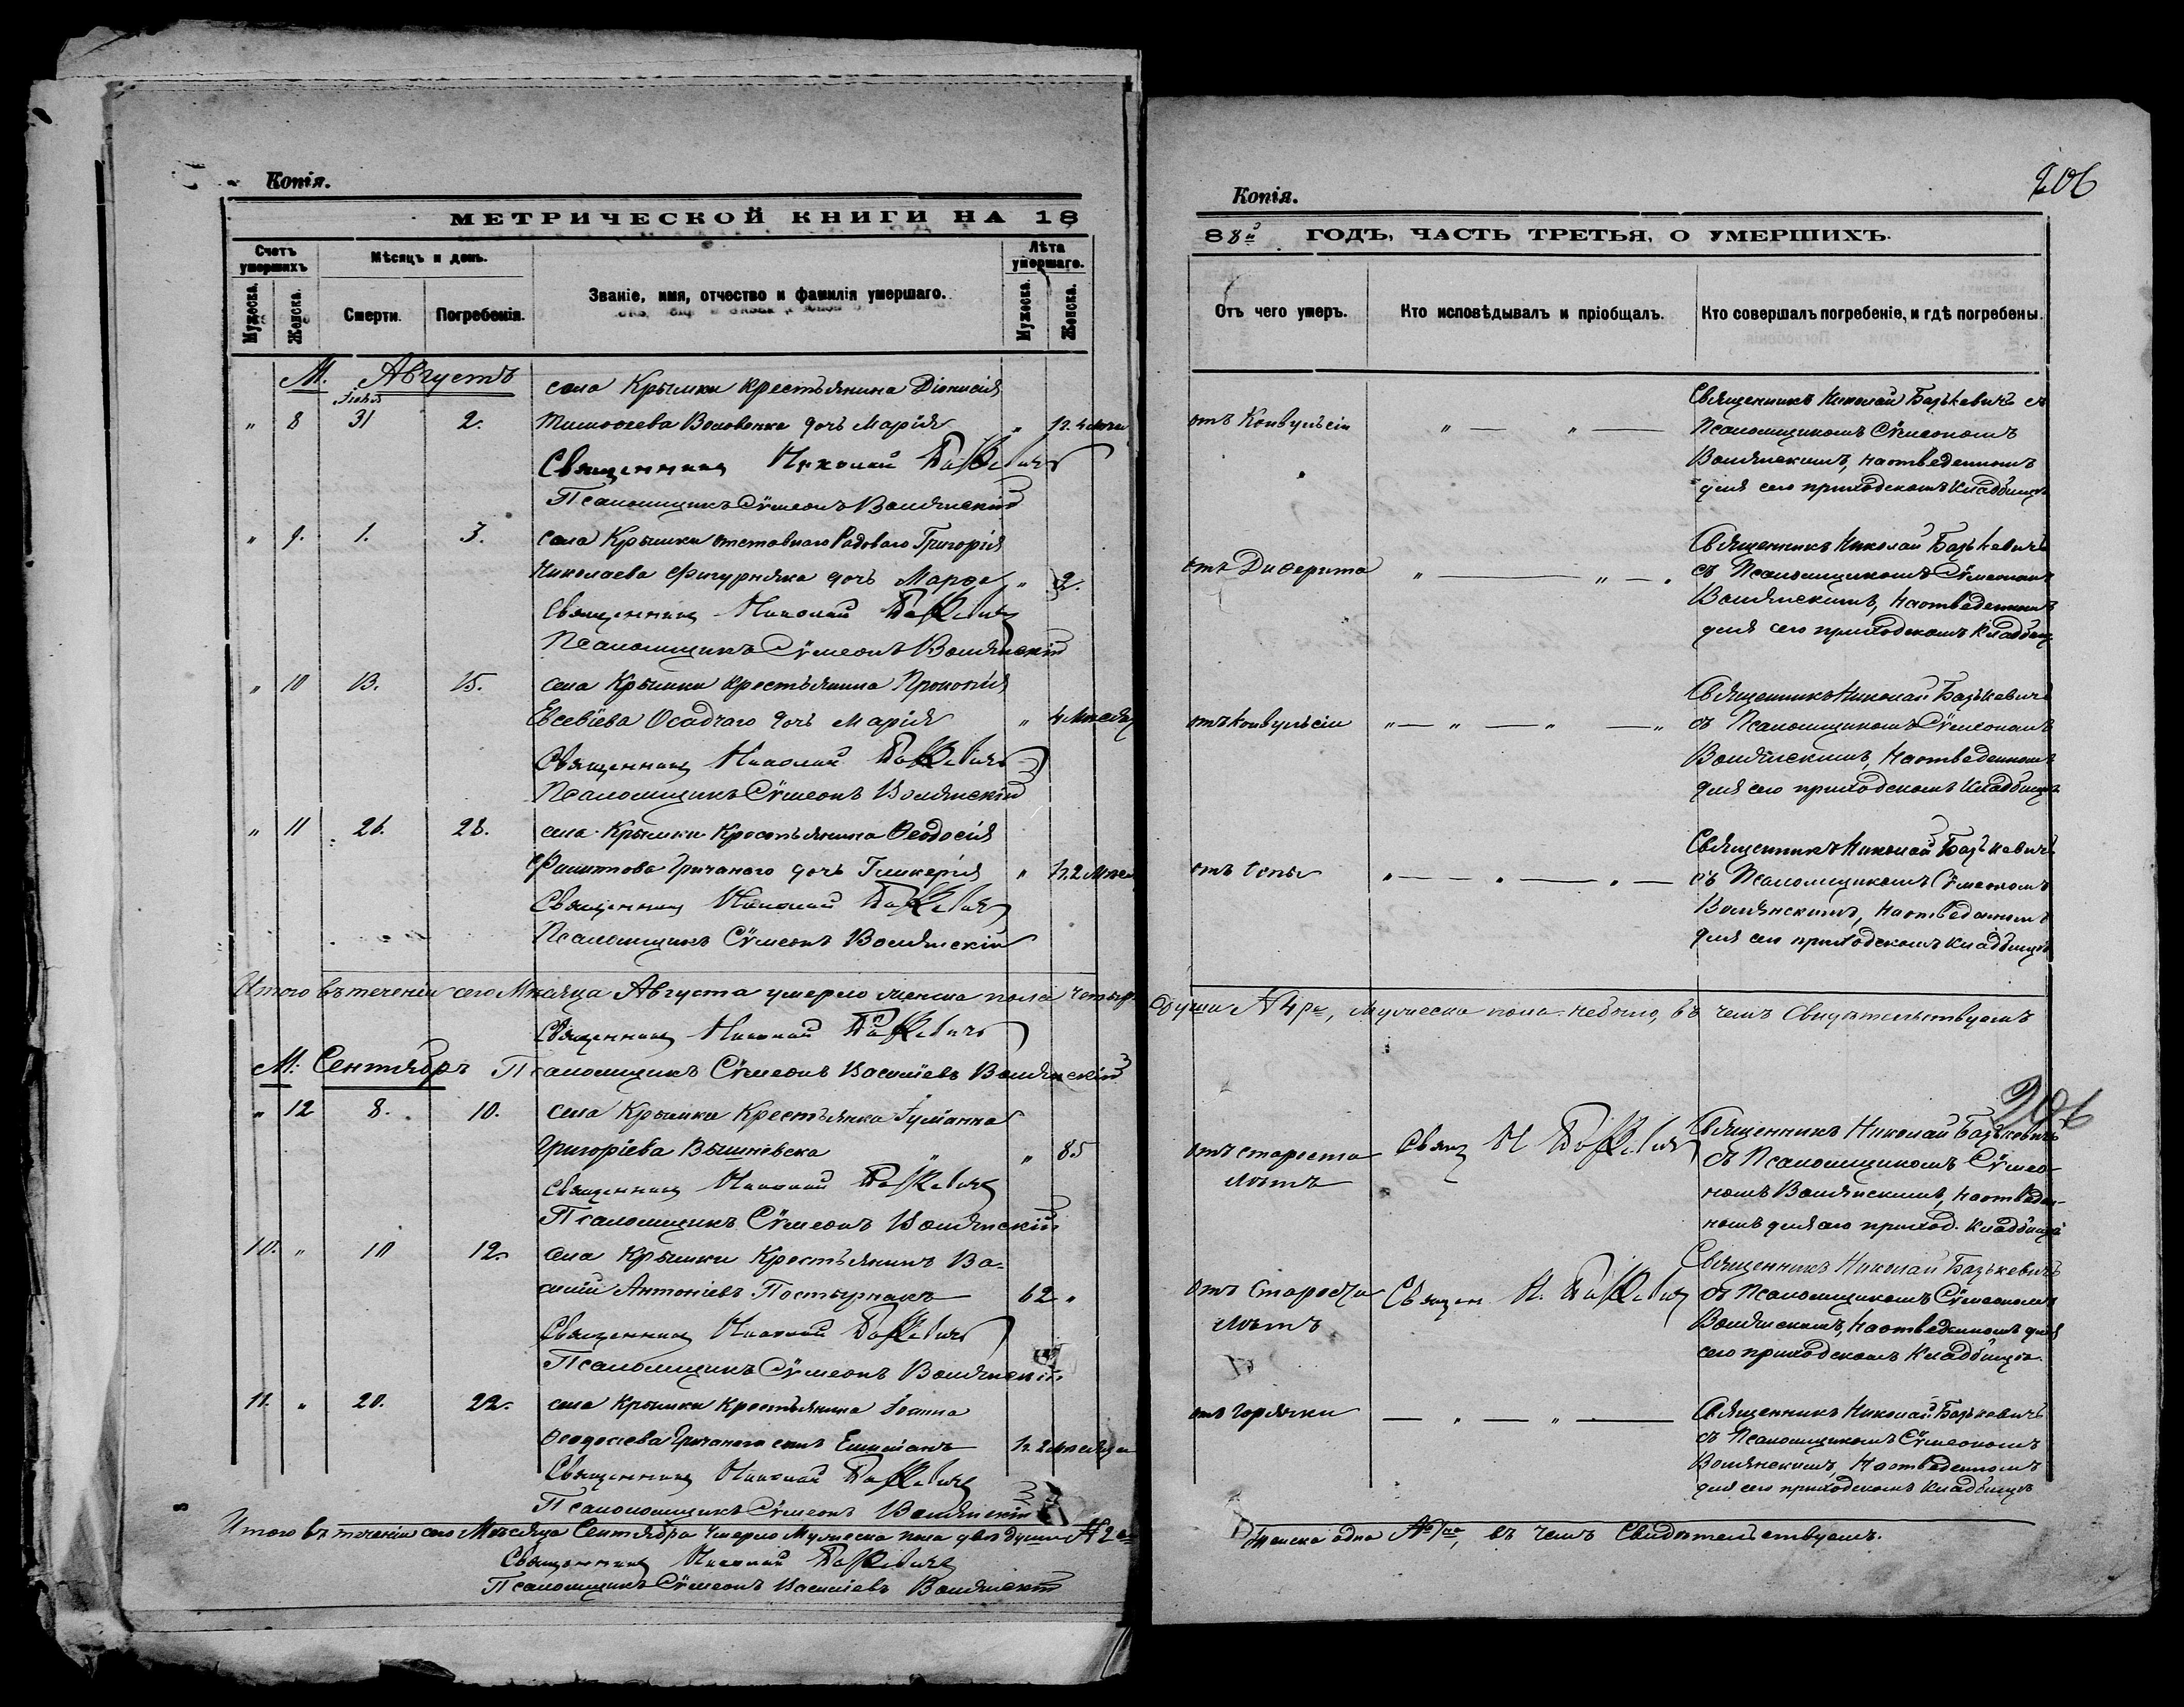 Копія.
МЕТРИЧЕСКОЙ КНИГИ НА 18
Счетъ умершихъ
Мѣсяцъ и день.
Званіе, имя, отчество и фамилія умершаго.
Лѣта умершаго.
Мужеска.
Женска.
Смерти.
Погребенія.
Мужеска.
Женска.
М. Августъ
села Крымки крестьянина Діонисія
" 8 31 2. Тимофеева Воловенка дочь Марія "
Священникъ Николай Базкевичъ
Псаломщикъ Сѵмеонъ Волянскій
" 9. 1. 3. села Крымки отставнаго Рядоваго Григорія
Николаева Фигурняка дочь Марфа " 2.
Священникъ Николай Базкевичъ
Псаломщикъ Сѵмеонъ Волянскій
" 10 13. 15. села Крымки крестьянина Прокопія
Евсевіева Осадчаго дочь Марія " 4 мѣсяц
Священникъ Николай Базкевичъ
Псаломщикъ Сѵмеонъ Волянскій
" 11 26. 28. села Крымки Крестьянина Ѳеодосія
Филиппова Гричаного дочь Гликерія "
Священникъ Николай Базкевичъ
Псаломщикъ Сѵмеонъ Волянскій
Итого въ теченіи сего Мѣсяца Августа умерло женска пола четыр
Священникъ Николай Базкевичъ
М. Сентябрь Псаломщикъ Сѵмеонъ Василіевъ Волянскій
" 12 8. 10. села Крымки Крестьянка Іуліанна
Григоріева Вышневска " 85
Священникъ Николай Базкевичъ
Псаломщикъ Сѵмеонъ Волянскій
10. " 10 12. села Крымки Крестьянинъ Ва-
силій Антоніевъ Постырнакъ 62 "
Священникъ Николай Базкевичъ
Псаломщикъ Сѵмеонъ Волянскій
11. " 20. 22. села Крымки Крестьянина Іоанна
Ѳеодосіева Гричаного сынъ Емиліанъ
Священникъ Николай Базкевичъ
Псаломщикъ Сѵмеонъ Волянскій
Итого въ теченіи сего Мѣсяца Сентября умерло Мужеска пола двѣ души № 2
Священникъ Николай Базкевичъ
Псаломщикъ Сѵмеонъ Василіевъ Волянскій
206
Копія.
88й ГОДЪ, ЧАСТЬ ТРЕТЬЯ, О УМЕРШИХЪ.
Отъ чего умеръ.
Кто исповѣдывалъ и пріобщалъ.
Кто совершалъ погребеніе, и гдѣ погребены.
отъ Конвульсіи
Священникъ Николай Базькевичъ съ
Псаломщикомъ Сѵмеономъ
Волянскимъ, на отведенномъ
для сего приходскомъ кладбищѣ
отъ Дифтерита
Священникъ Николай Базькевичъ
съ Псаломщикомъ Сѵмеономъ
Волянскимъ, на отведенномъ
для сего приходскомъ кладбищѣ
отъ конвульсіи
Священникъ Николай Базькевичъ
съ Псаломщикомъ Сѵмеономъ
Волянскимъ, на отведенномъ
для сего приходскомъ кладбищѣ
отъ Оспы
Священникъ Николай Базькевичъ
съ Псаломщикомъ Сѵмеономъ
Волянскимъ, на отведенномъ
для сего приходскомъ кладбищѣ
души № 4ре, мужеска пола небыло, въ чемъ Свидѣтельствуемъ
206
отъ старости
лѣтъ
Свящ Н Базкевичъ
Священникъ Николай Базькевичъ
съ Псаломщикомъ Сѵмео-
номъ Волянскимъ, на отведен-
номъ для сего приход. кладбищѣ
отъ Старости
лѣтъ
Священ Н. Базкевичъ
Священникъ Николай Базькевичъ
съ Псаломщикомъ Сѵмеономъ
Волянскимъ, на отведенномъ для
сего приходскомъ кладбищѣ
отъ горячки
Священникъ Николай Базькевичъ
съ Псаломщикомъ Сѵмеономъ
Волянскимъ, на отведенномъ
для сего приходскомъ кладбищѣ
Женска одна въ чемъ Свидѣтельствуемъ.